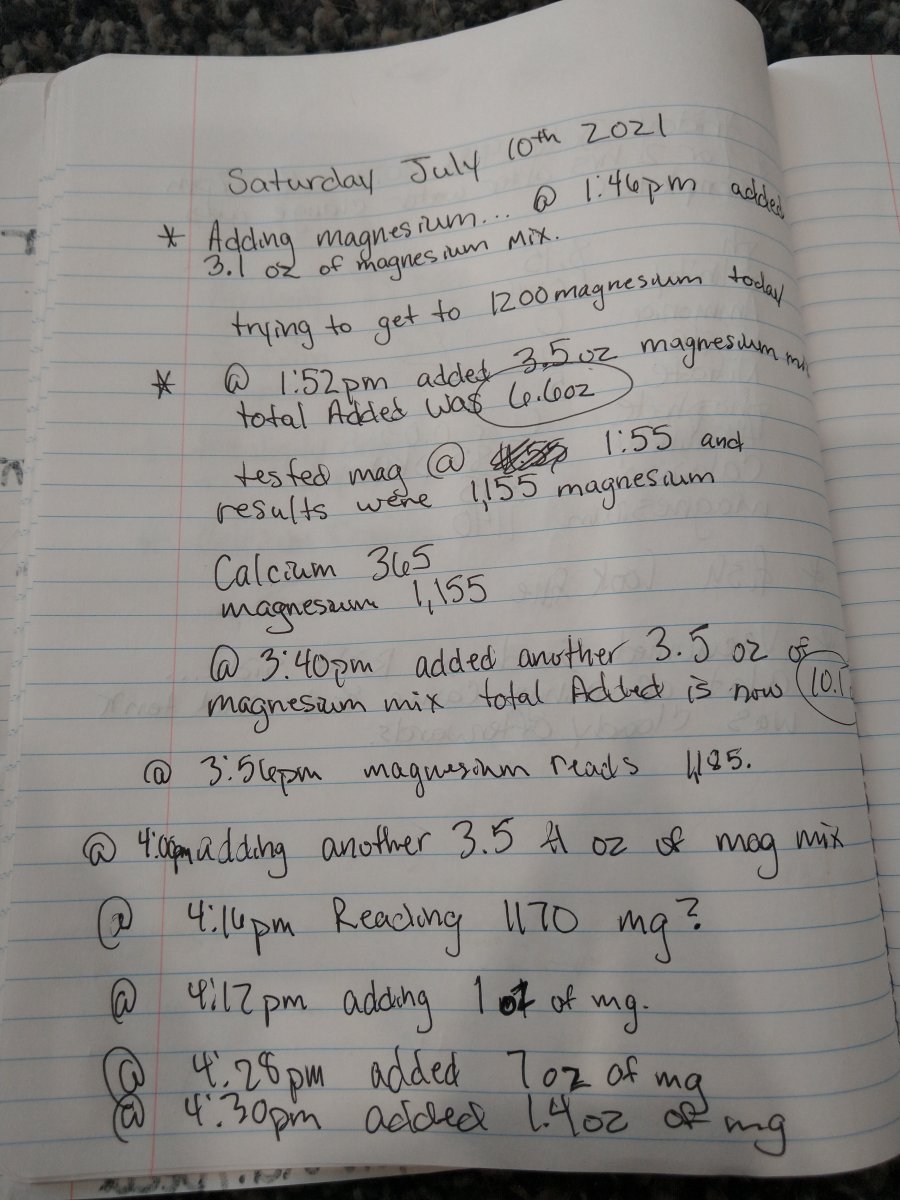 Saturday July 10th 2021
* Adding magnesium... @ 1:46pm added
3.1 oz of magnesium mix.
trying to get to 1200 magnesium today
* @ 1:52pm added 3.5oz magnesium
total Added was 6.6oz
tested mag @ 1:55 and
results were 1,155 magnesium
Calcium 365
magnesium 1,155
@ 3:40pm added another 3.5 oz of
magnesium mix total Added is now 10.1
@ 3:56pm magnesium reads 1,185.
@ 4:00pm adding another 3.5 fl oz of mag mix
@ 4:16pm Reading 1170 mg?
@ 4:17pm adding 1 oz of mg.
@ 4:28pm added 7oz of mg
@ 4:30pm added 1.4oz of mg